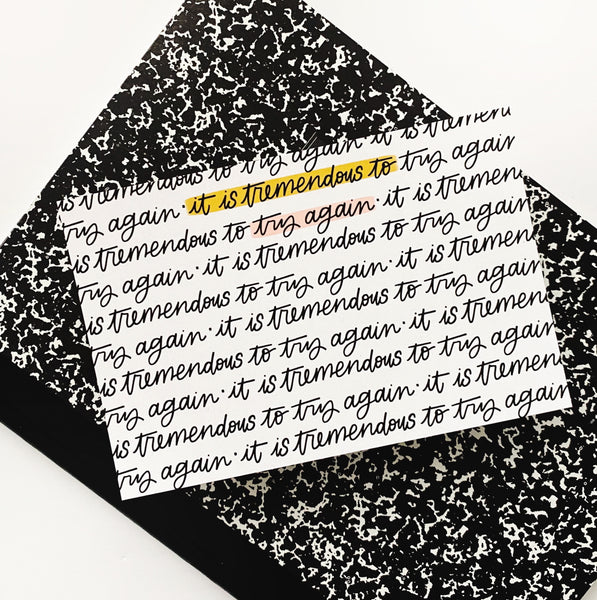 is tremendous to try again · it is tremen
try again · it is tremendous to try again
is tremendous to try again · it is tremen
try again · it is tremendous to try again
is tremendous to try again · it is tremen
try again · it is tremendous to try again
is tremendous to try again · it is tremen
try again · it is tremendous to try again
is tremendous to try again · it is tremen
try again · it is tremendous to try again